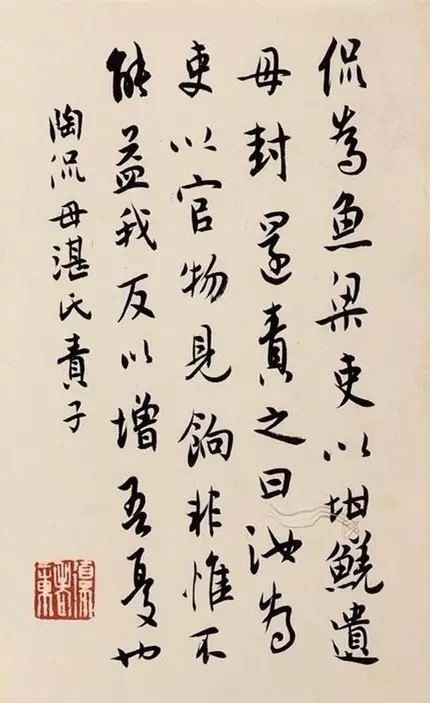 侃為魚梁吏以坩鱙遺
母封還責之曰汝為
吏以官物見餉非惟不
能益我反以增吾憂也
陶侃母湛氏責子